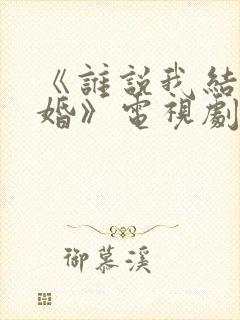 《誰說我結
婚》電視劇
御慕溪